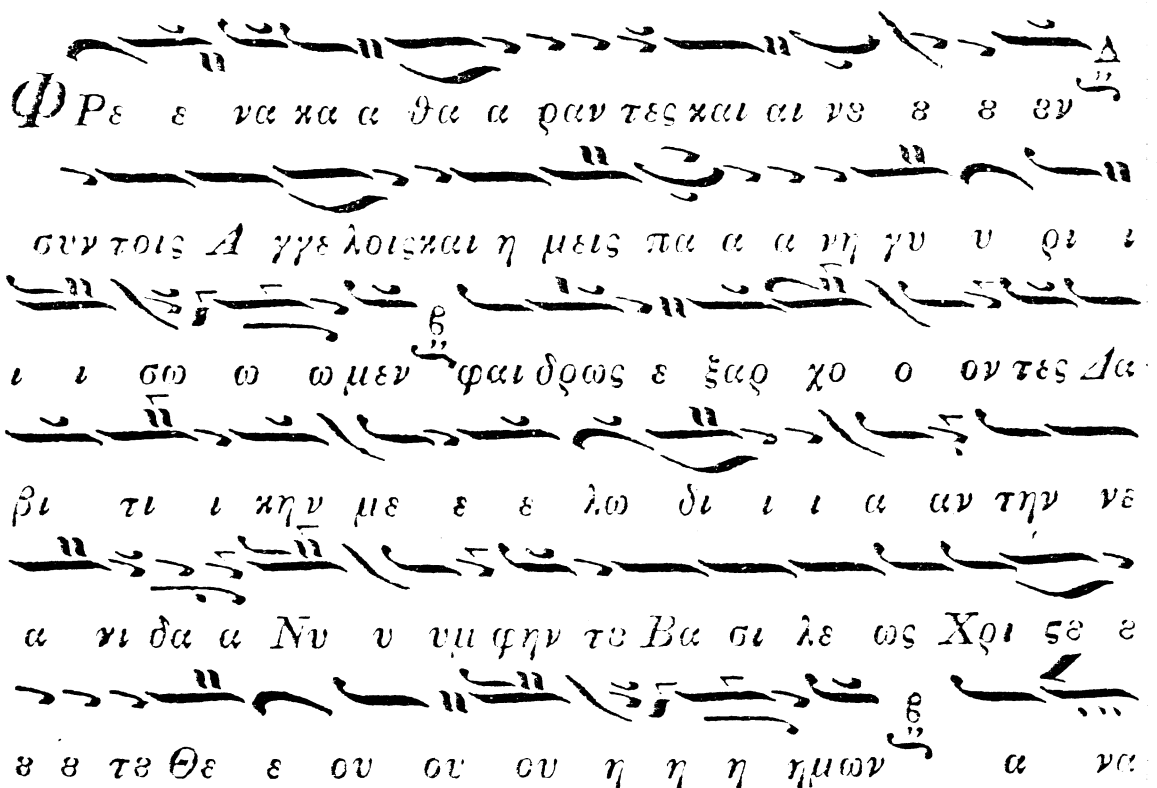 Δ
ΦΡε ε να κα α θα α ραν τες και αι νȣ ȣ ȣ ȣν
συν τοις Α γγε λοις και η μεις πα α α νη γυ υ ρι ι
β
ι ι σω ω ω μεν φαι δρως ε ξαρ χο ο ον τες Δα
βι τι ι κην με ε ε λω δι ι ι α αν την νε
α νι δα α Νυ υ υμ φην τȣ Βα σι λε ως Χρι ϛȣ ȣ
β
ȣ ȣ τȣ Θε ε ου ου ου η η η ημων α να